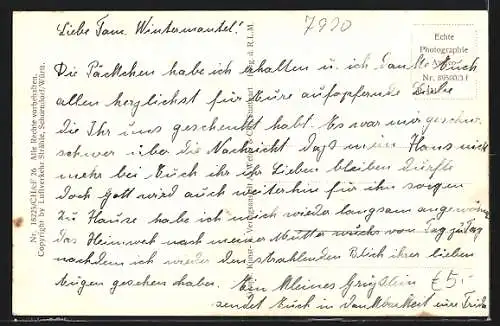 7920
Liebe Fam. Wintermantel!
Echte
Photographie
Nr. 39540/31
Die Päckchen habe ich erhalten u. ich danke Euch
allen herzlichst für Eure aufopfernde Liebe
die Ihr uns geschenkt habt. Es war mir
schwer über die Nachricht daß mein Hans nicht
mehr bei Euch ihr Lieben bleiben durfte
doch Gott wird auch weiterhin für ihn sorgen
Zu Hause habe ich mich wieder langsam
das Heimweh nach meiner Mutter wuchs von Tag zu Tag
nachdem ich wieder den strahlenden Blick ihrer lieben
Augen gesehen habe. Ein kleines Grüßlein
sendet Euch in Dankbarkeit eure
£5,-
Nr. 26 Alle Rechte vorbehalten.
Copyright by Luftverkehr Strähle, Schorndorf/Württ.
d. R.L.M.